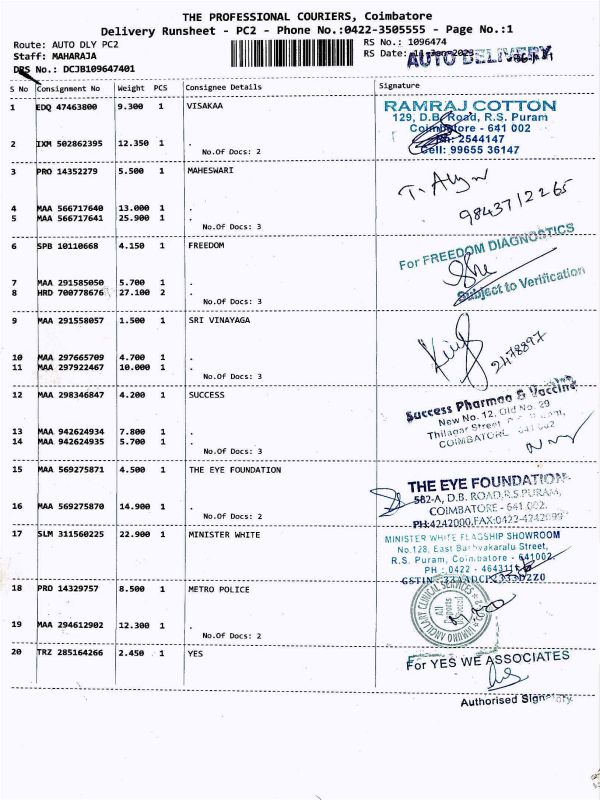 THE PROFESSIONAL COURIERS, Coimbatore
Delivery Runsheet - PC2 - Phone No.:0422-3505555 - Page No.:1
Route: AUTO DLY PC2
Staff: MAHARAJA
DRS No.: DCJB109647401
RS No.: 1096474
RS Date: 11-Jan-2023
AUTO DELIVERY
S No Consignment No Weight PCS Consignee Details Signature
1 EDQ 47463800 9.300 1 VISAKAA
RAMRAJ COTTON
129, D.B. Road, R.S. Puram
Coimbatore - 641 002
Ph: 2544147
Cell: 99655 36147
2 IXM 502862395 12.350 1 .
No.Of Docs: 2
3 PRO 14352279 5.500 1 MAHESWARI
9843712265
4 MAA 566717640 13.000 1 .
5 MAA 566717641 25.900 1 .
No.Of Docs: 3
6 SPB 10110668 4.150 1 FREEDOM
For FREEDOM DIAGNOSTICS
Subject to Verification
7 MAA 291585050 5.700 1 .
8 HRD 700778676 27.100 2 .
No.Of Docs: 3
9 MAA 291558057 1.500 1 SRI VINAYAGA
2478897
10 MAA 297665709 4.700 1 .
11 MAA 297922467 10.000 1 .
No.Of Docs: 3
12 MAA 298346847 4.200 1 SUCCESS
Success Pharmaa & Vaccine
New No. 12, Old No. 29
Thilagar Street
COIMBATORE 641 002
13 MAA 942624934 7.800 1 .
14 MAA 942624935 5.700 1 .
No.Of Docs: 3
15 MAA 569275871 4.500 1 THE EYE FOUNDATION
THE EYE FOUNDATION
582-A, D.B. ROAD,R.S.PURAM,
COIMBATORE - 641 002.
PH:4242000,FAX:0422-4242099
16 MAA 569275870 14.900 1 .
No.Of Docs: 2
17 SLM 311560225 22.900 1 MINISTER WHITE
MINISTER WHITE FLAGSHIP SHOWROOM
No.128, East Bashyakaralu Street,
R.S. Puram, Coimbatore - 641002.
PH : 0422 -
GSTIN
18 PRO 14329757 8.500 1 METRO POLICE
ANCILLARY CLINICAL SERVICES
19 MAA 294612902 12.300 1 .
No.Of Docs: 2
20 TRZ 285164266 2.450 1 YES
For YES WE ASSOCIATES
Authorised Signatory